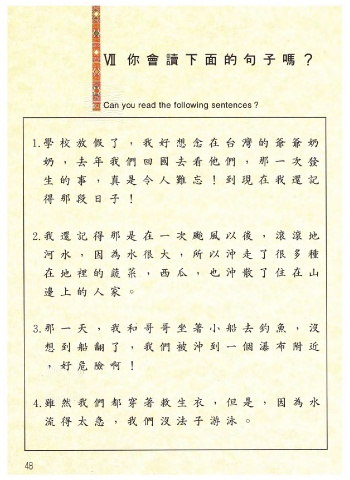 Ⅶ 你會讀下面的句子嗎？
Can you read the following sentences？
1.學校放假了，我好想念在台灣的爺爺奶
奶，去年我們回國去看他們，那一次發
生的事，真是令人難忘！到現在我還記
得那段日子！
2.我還記得那是在一次颱風以後，滾滾地
河水，因為水很大，所以沖走了很多種
在地裡的蔬菜，西瓜，也沖散了住在山
邊上的人家。
3.那一天，我和哥哥坐著小船去釣魚，沒
想到船翻了，我們被沖到一個瀑布附近
，好危險啊！
4.雖然我們都穿著救生衣，但是，因為水
流得太急，我們沒法子游泳。
48